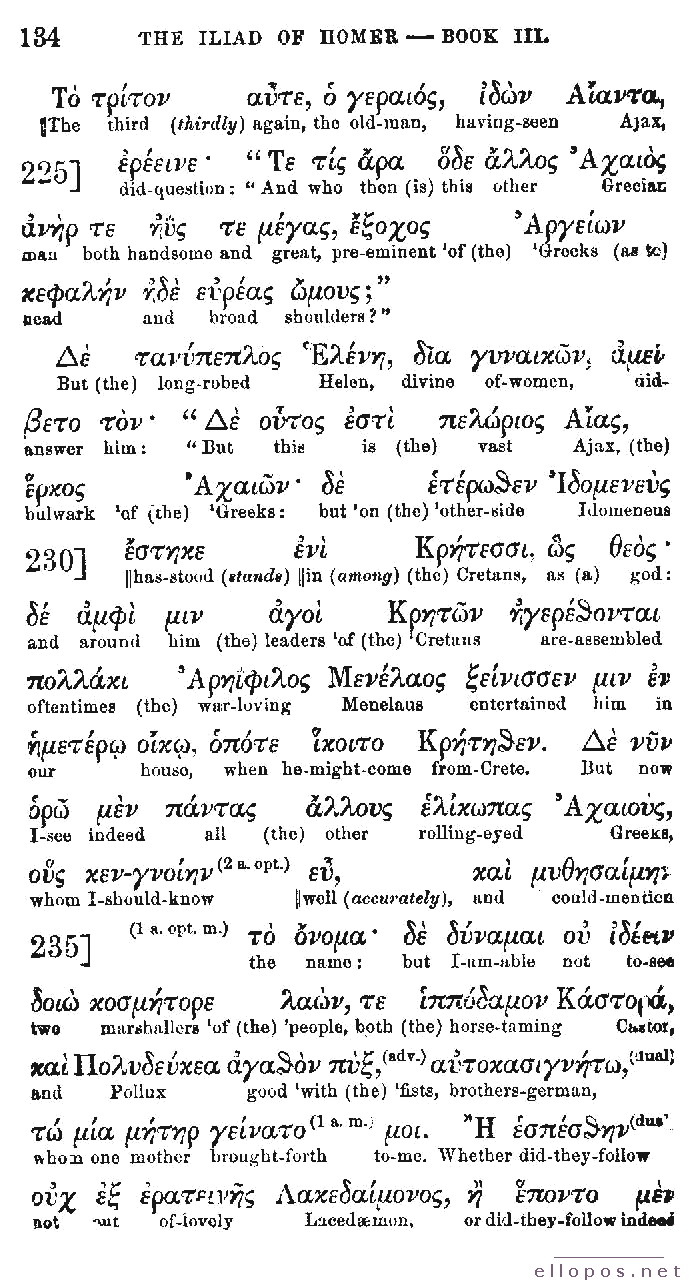 134 THE ILIAD OF HOMER — BOOK III.
Τὸ τρίτον αὖτε, ὁ γεραιός, ἰδὼν Αἴαντα,
‖The third (thirdly) again, the old-man, having-seen Ajax,
225] ἐρέεινε· “Τε τίς ἄρα ὅδε ἄλλος Ἀχαιὸς
did-question: “And who then (is) this other Grecian
ἀνήρ τε ἠΰς τε μέγας, ἔξοχος Ἀργείων
man both handsome and great, pre-eminent 'of (the) 'Greeks (as to)
κεφαλήν ἠδὲ εὐρέας ὤμους;”
head and broad shoulders?”
Δὲ τανύπεπλος Ἑλένη, δῖα γυναικῶν, ἀμεί-
But (the) long-robed Helen, divine of-women, did-
βετο τὸν· “Δὲ οὗτος ἐστὶ πελώριος Αἴας,
answer him: “But this is (the) vast Ajax, (the)
ἕρκος Ἀχαιῶν· δὲ ἑτέρωθεν Ἰδομενεὺς
bulwark 'of (the) 'Greeks: but 'on (the) 'other-side Idomeneus
230] ἕστηκε ἐνὶ Κρήτεσσι, ὣς θεὸς·
‖has-stood (stands) ‖in (among) (the) Cretans, as (a) god:
δέ ἀμφὶ μιν ἀγοὶ Κρητῶν ἠγερέθονται
and around him (the) leaders 'of (the) 'Cretans are-assembled
πολλάκι Ἀρηΐφιλος Μενέλαος ξείνισσεν μιν ἐν
oftentimes (the) war-loving Menelaus entertained him in
ἡμετέρῳ οἴκῳ, ὁπότε ἵκοιτο Κρήτηθεν. Δὲ νῦν
our house, when he-might-come from-Crete. But now
ὁρῶ μὲν πάντας ἄλλους ἑλίκωπας Ἀχαιοὺς,
I-see indeed all (the) other rolling-eyed Greeks,
οὓς κεν-γνοίην (2 a. opt.) εὖ, καὶ μυθησαίμην
whom I-should-know ‖well (accurately), and could-mention
235] (1 a. opt. m.) τὸ ὄνομα· δὲ δύναμαι οὐ ἰδέειν
the name; but I-am-able not to-see
δοιὼ κοσμήτορε λαῶν, τε ἱππόδαμον Κάστορά,
two marshallers 'of (the) 'people, both (the) horse-taming Castor,
καὶ Πολυδεύκεα ἀγαθὸν πὺξ, (adv.) αὐτοκασιγνήτω, (dual)
and Pollux good 'with (the) 'fists, brothers-german,
τώ μία μήτηρ γείνατο (1 a. m.) μοι. Ἢ ἑσπέσθην (dual
whom one mother brought-forth to-me. Whether did-they-follow
οὐχ ἐξ ἐρατεινῆς Λακεδαίμονος, ἢ ἕποντο μὲν
not out of-lovely Lacedæmon, or did-they-follow indeed
ellopos.net